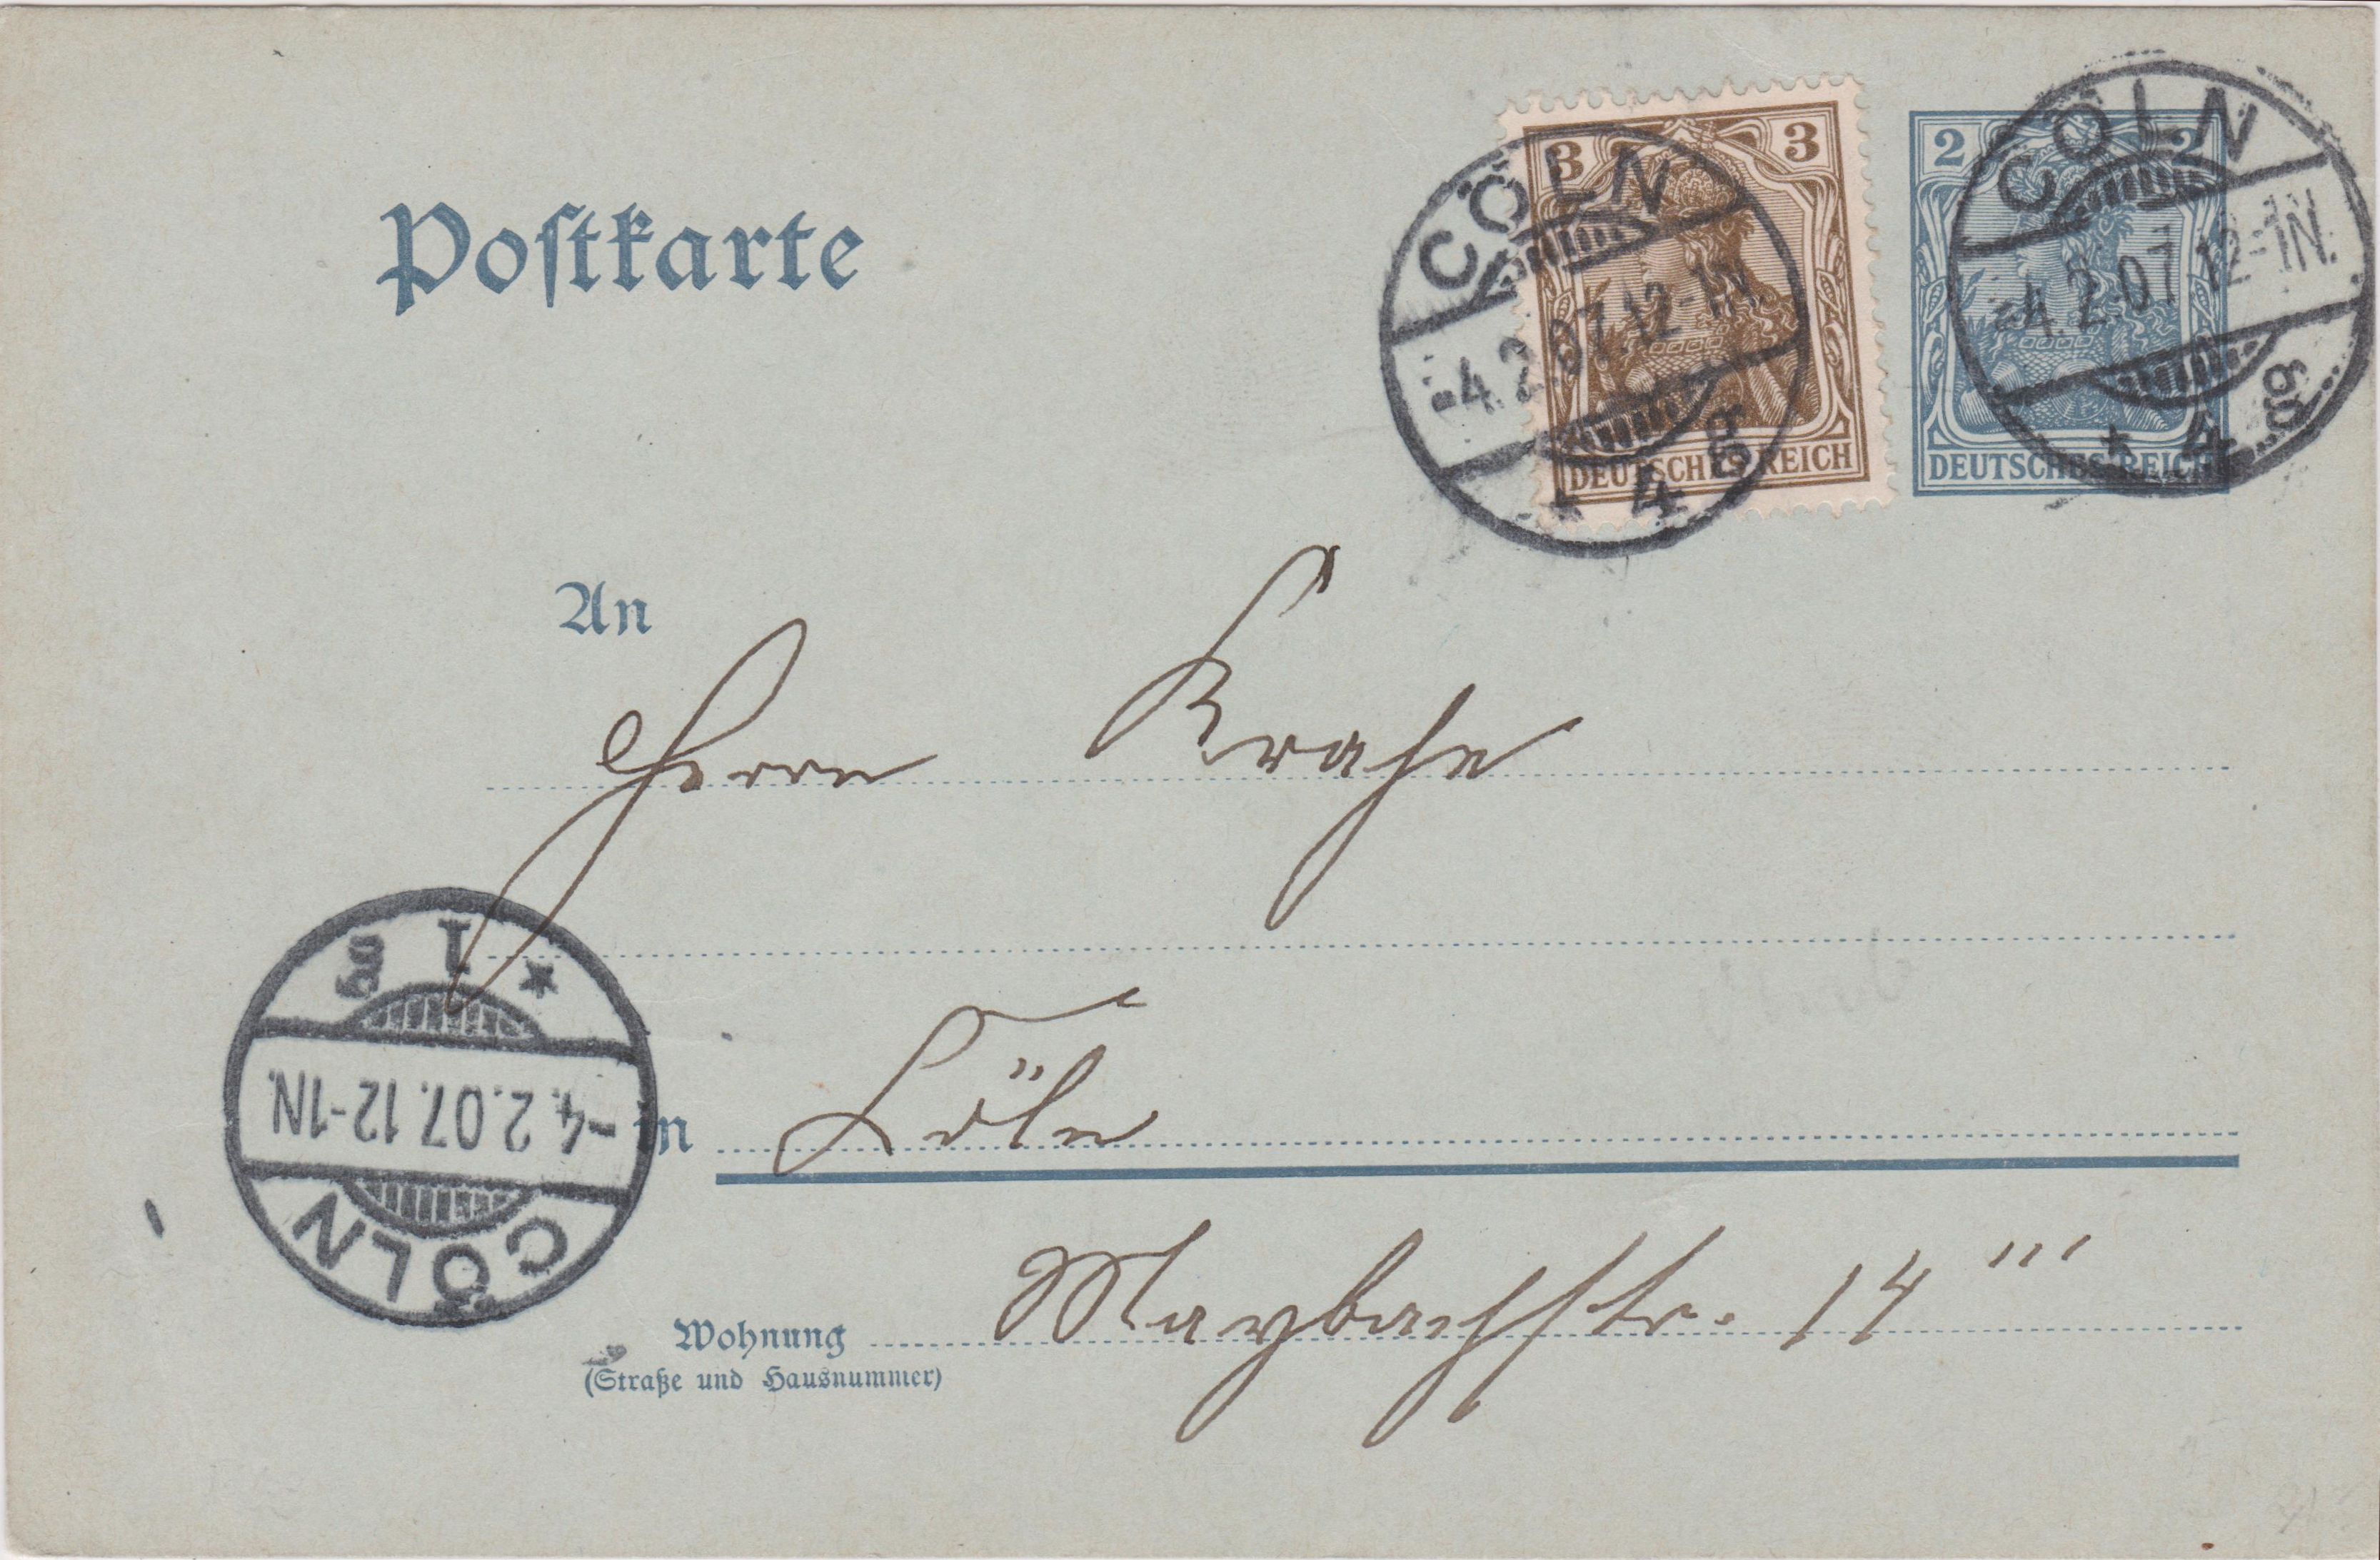 Postkarte
3 3
DEUTSCHES REICH
2 2
DEUTSCHES REICH
CÖLN
-4.2.07.12-1N.
* 4 g
CÖLN
-4.2.07.12-1N.
* 4 g
An
Herrn Krahe
in Cöln
Maybachstr. 14 '''
Wohnung
(Straße und Hausnummer)
CÖLN
-4.2.07.12-1N.
* 1